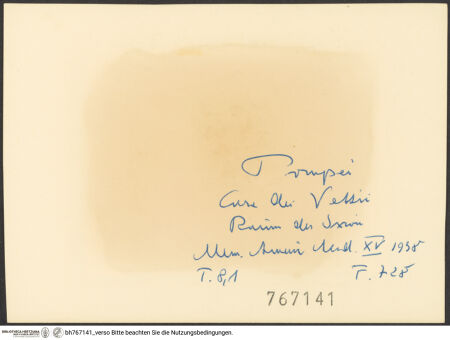 Pompei
Casa dei Vettii
Raum des Ixion
Mem. Amer. Acad. XV 1938
T. 8,1 F. 728
767141
BIBLIOTHECA HERTZIANA
bh767141_verso Bitte beachten Sie die Nutzungsbedingungen.